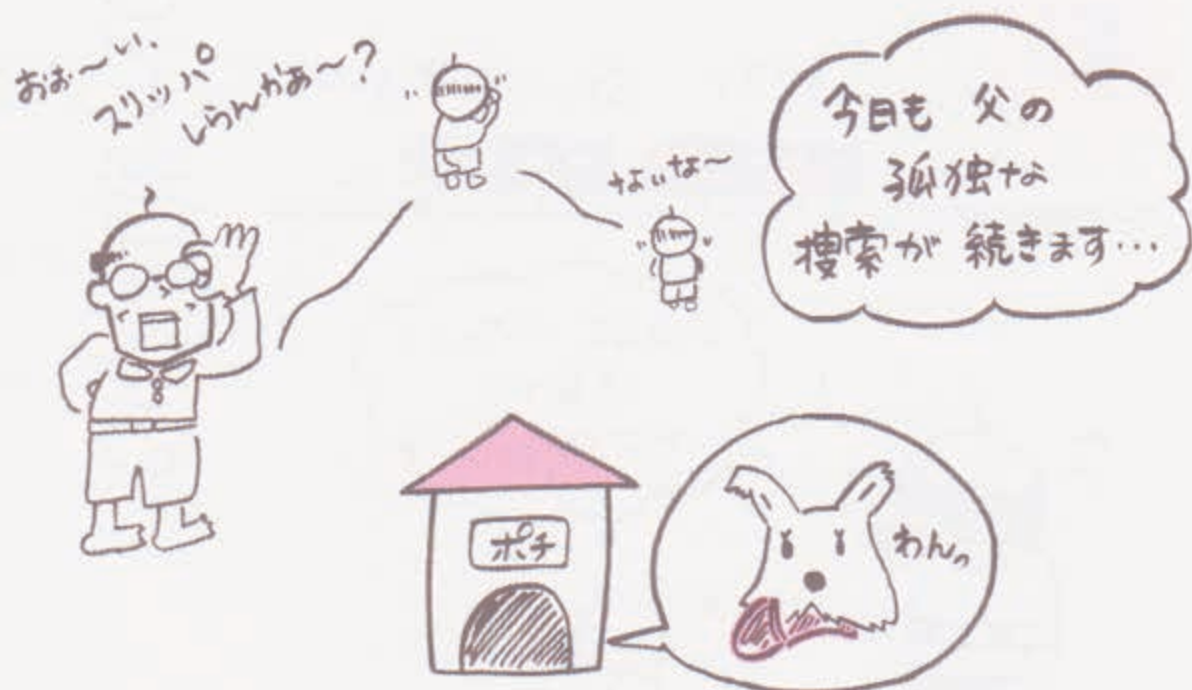 おぉ〜い、
スリッパ
しらんかぁ〜?
ないな〜
今日も 父の
孤独な
捜索が 続きます…
ポチ
わんっ